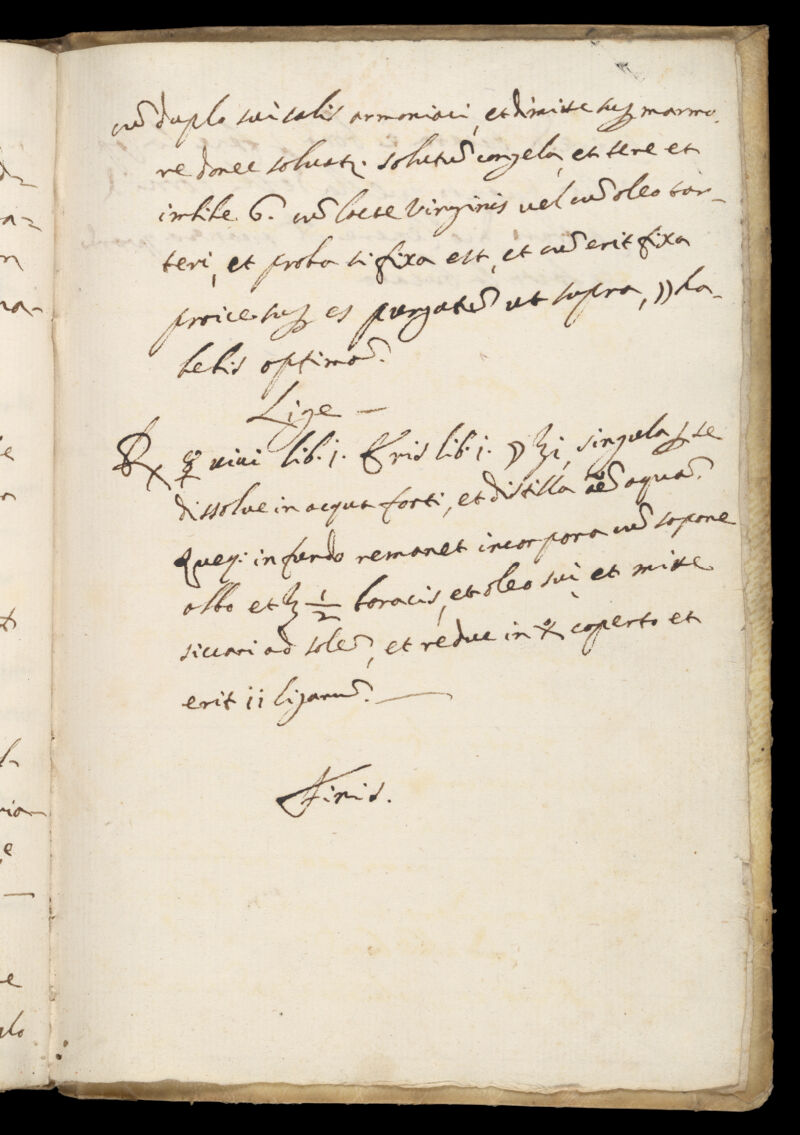 cũ duplo sui salis armoniaci, et dimitte suꝑ marmo.
re donec soluatꝛ. solutũ congela, et tere et
imbibe 6. cũ lacte virginis uel cũ oleo tar-
teri, et proba si fixa est, et cũ erit fixa
proice suꝑ es purgatũ ut supra, ☽ ha-
bebis optimã.
Lige —
℞ ☿ vivi lib. j. Eris lib. j. ☽ ℥ i, singula ꝑ se
dissolue in acqua forti, et distilla aquã.
in fundo remanet incorpora cũ sapone
albo et ℥ 1/2 boracis, et oleo sui et mitte
siccari ad solẽ, et reduc in coperto et
erit ii ligarũ. —
Finis.
d-
n
na-
e
ria-
e
e